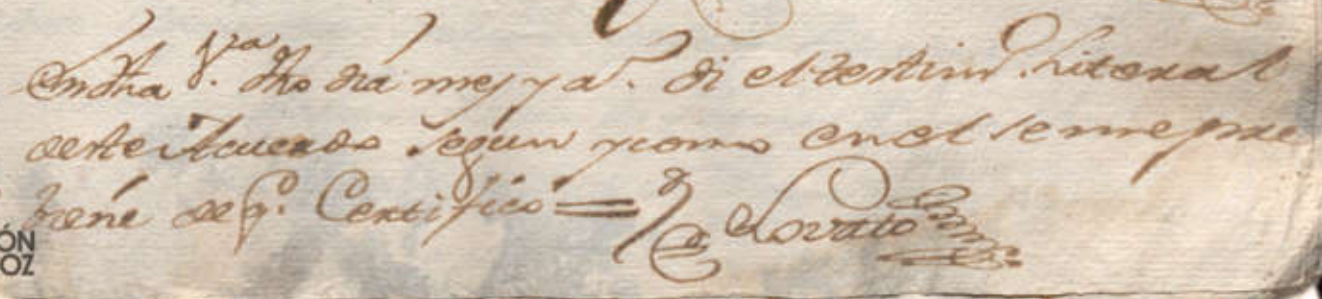 En dha V.ª dho dia mes y a.º di el testim.º Literal
deste Acuerdo segun y como en el se me pre
biene de q.º Certifico =
Lovato
ÓN
OZ